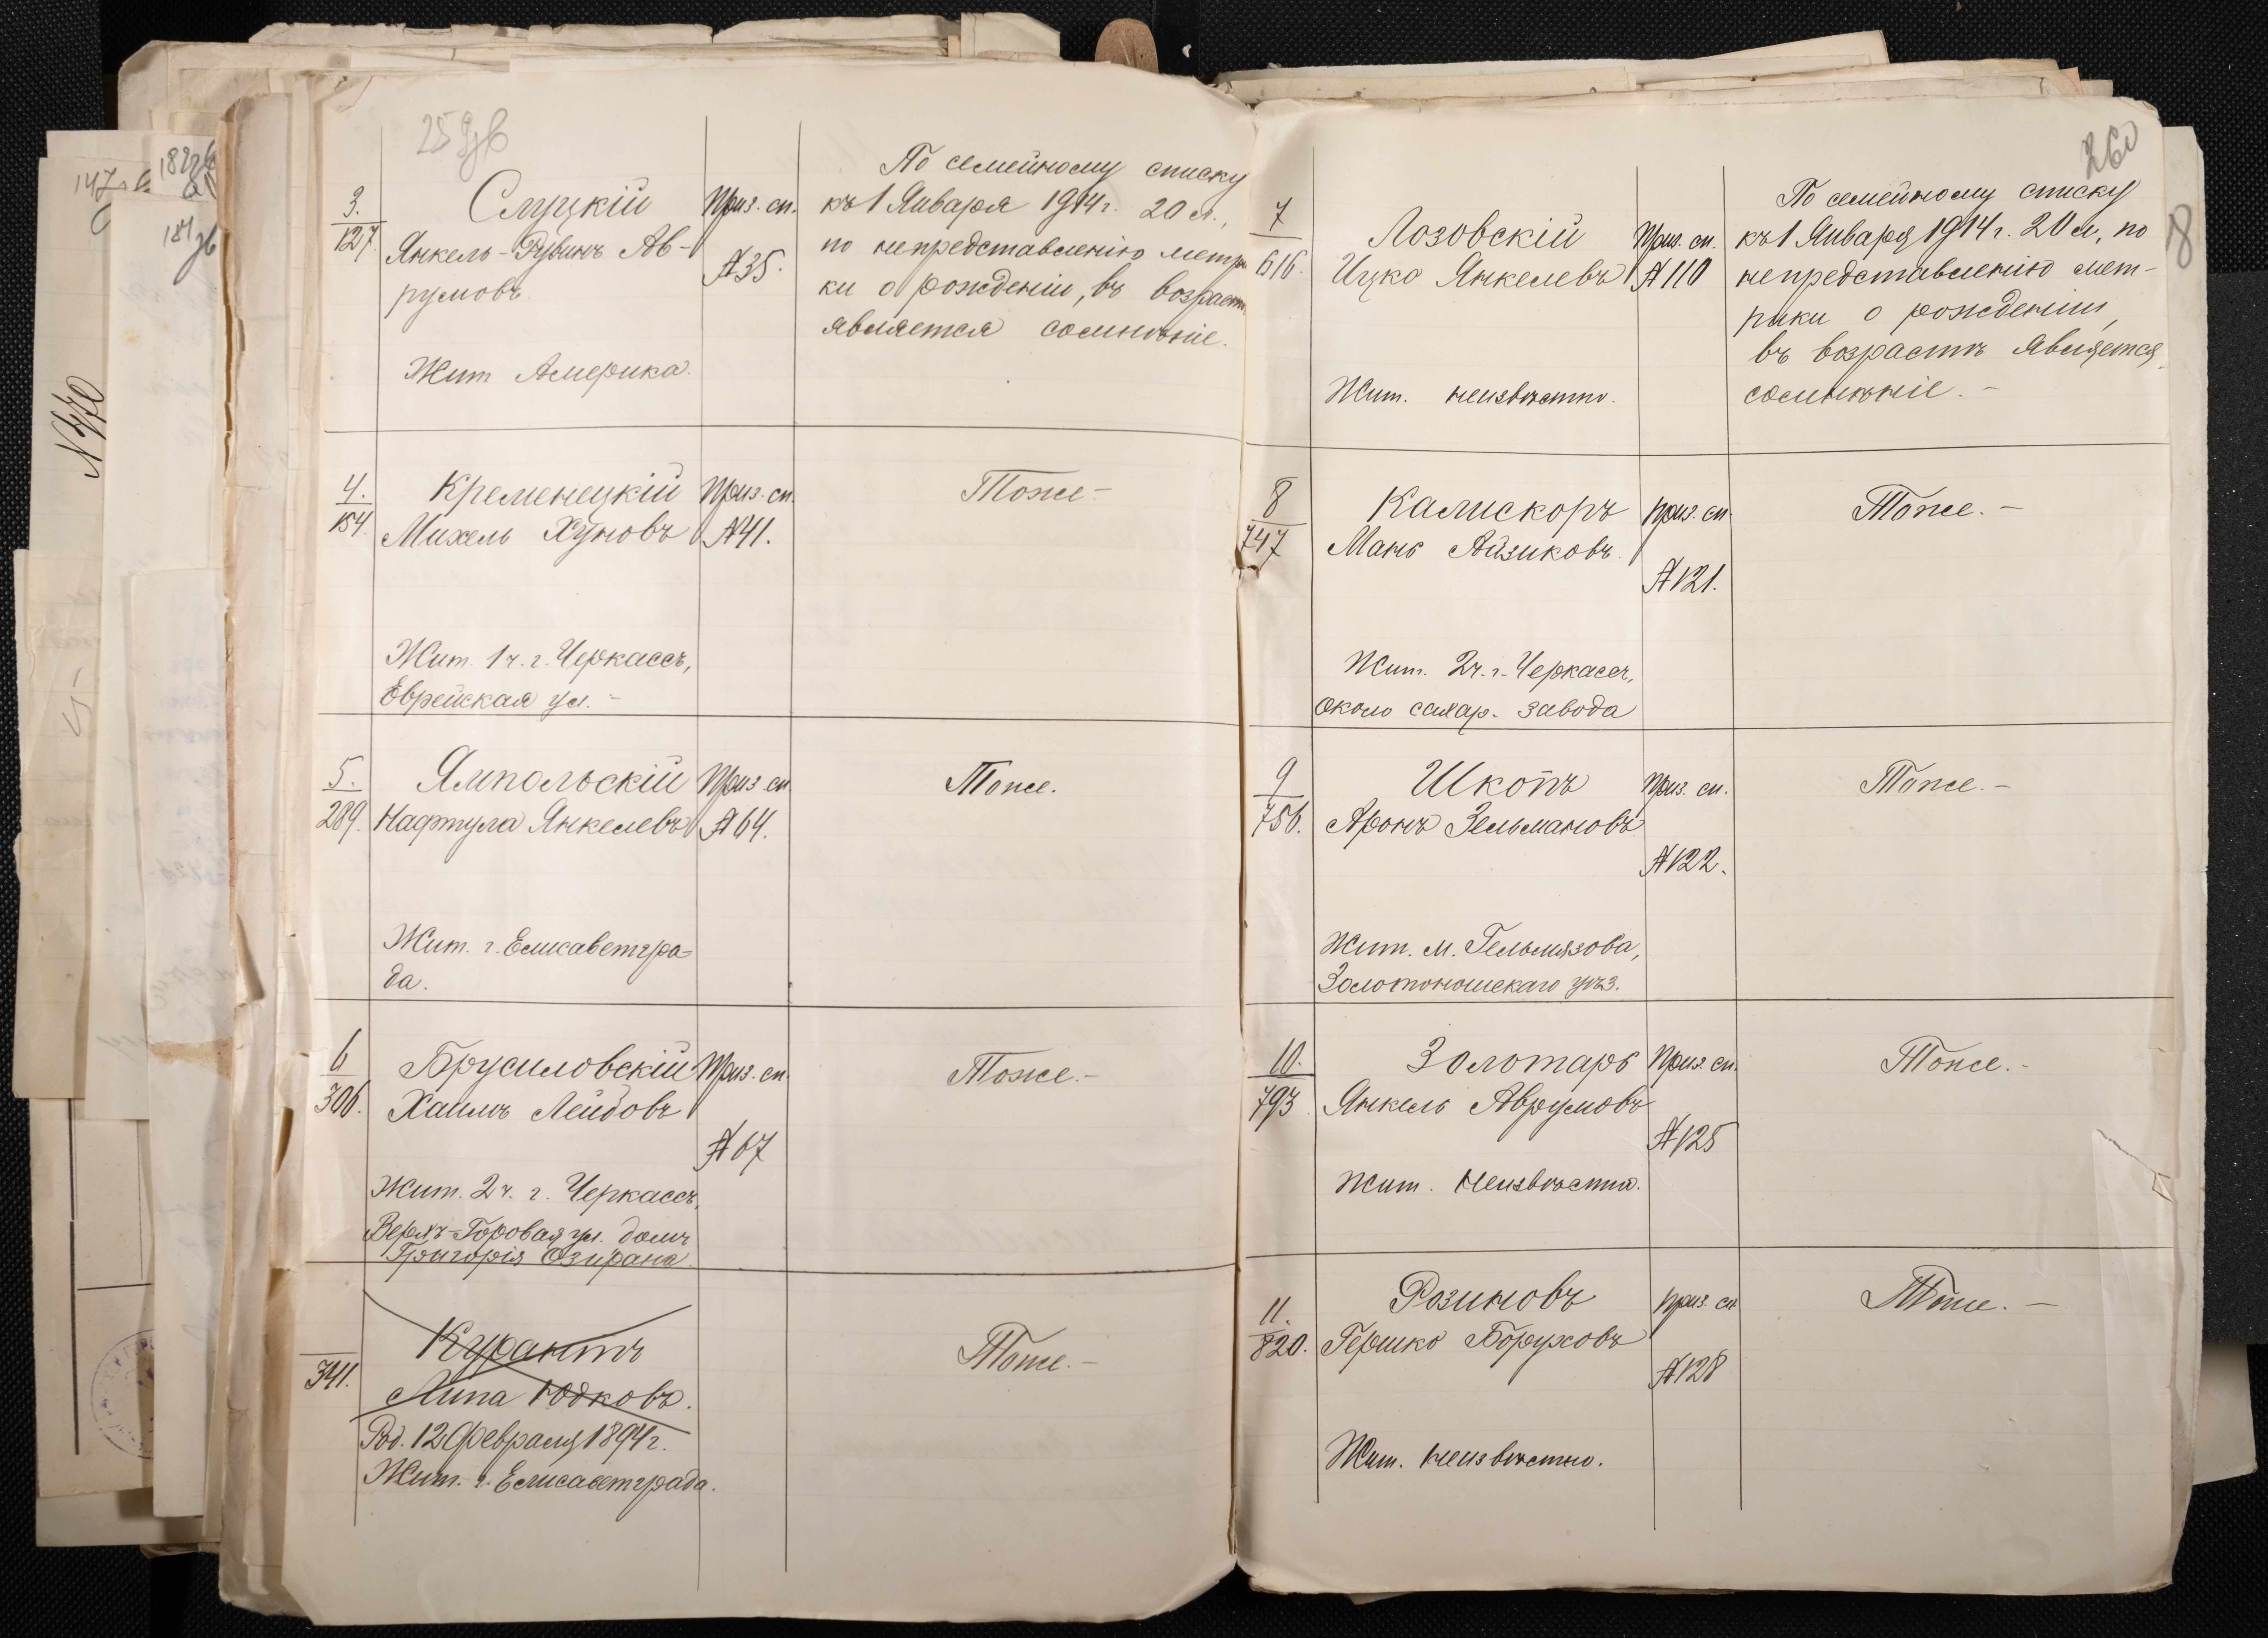 147
182
181
N 470
259
3.
127.
Слуцкій
Янкель-Рувинъ Ав-
румовъ.
Жит Америка.
Приз. сп.
№35.
По семейному списку
къ 1 Января 1914 г. 20 л.,
по непредставленію метри
ки о рожденіи, въ возрасте
является сомнѣніе.
4.
154.
Кременецкій
Михель Хуновъ
Приз. сп.
№41.
Тоже-
Жит. 1 ч. г. Черкассъ,
Еврейская ул. -
5.
289.
Ямпольскій
Нафтула Янкелевъ
Приз. сп.
№64.
Тоже.
Жит. г. Елисаветгра-
да.
6
306.
Брусиловскій
Хаимъ Лейбовъ
Приз. сп.
№67
Тоже.-
Жит. 2 ч. г. Черкассъ,
Верхъ-Горовая ул. домъ
Григорія Озирана
341.
Курантъ
Липа Юдковъ.
Род. 12 Февраля 1894 г.
Жит. г. Елисаветграда.
Тоже.-
260
8
7
616.
Лозовскій
Ицко Янкелевъ
Жит. неизвѣстно.
Приз. сп.
№110
По семейному списку
къ 1 Января 1914 г. 20 л, по
непредставленію мет-
рики о рожденіи,
въ возрастѣ является
сомнѣніе. -
8
747
Калискоръ
Мань Айзиковъ.
Приз. сп.
№121.
Тоже. -
Жит. 2 ч. г. Черкассъ,
около сахар. завода
9
756.
Шкопъ
Аронъ Зельмановъ
Приз. сп.
№122.
Тоже. -
Жит. м. Гельмязова,
Золотоношскаго уѣз.
10.
793
Золотарь
Янкель Аврумовъ
Приз. сп.
№125
Тоже. -
Жит. Неизвѣстно.
11.
820.
Розиновъ
Гершко Боруховъ
Приз. сп
№128
Тоже. -
Жит. неизвѣстно.